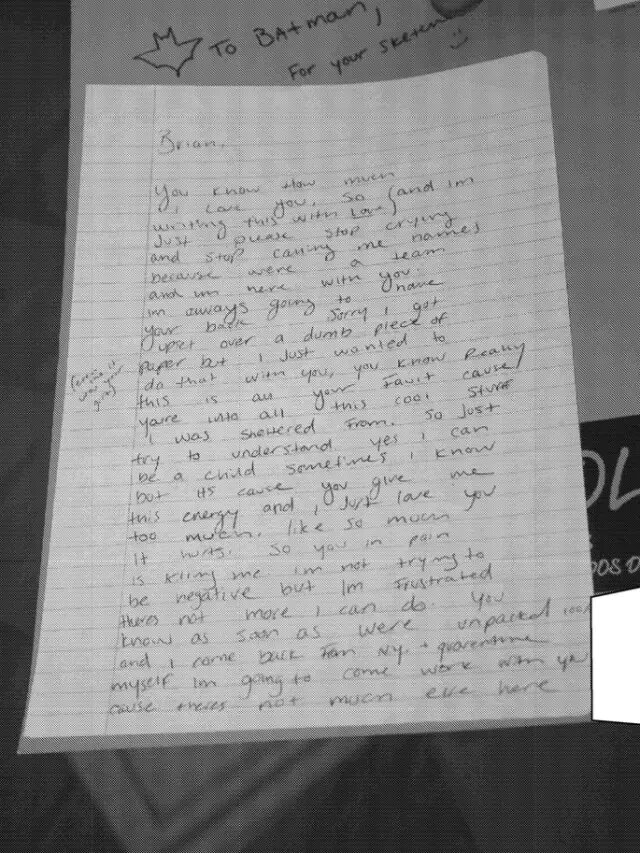 To BAtman,
For your sketch
Brian,
You know How much
i Love you, so (and im
writing this with Love)
Just please stop crying
and stop calling me names
because were a team
and im here with you.
im always going to have
your back. Sorry i got
upset over a dumb piece of
paper but i Just wanted to
do that with you, you know Really
this is all your fault cause
youre into all this cool stuff
i was sheltered from. So Just
try to understand. yes i can
be a child sometimes i know
but its cause you give me
this energy and i Just love you
too much. like so much
it hurts. So you in pain
is killing me. im not trying to
be negative but im Frustrated
theres not more i can do. You
know as soon as were unpacked
and i come back from NY. + quarentine
myself im going to come work with you
cause theres not much else here
OL
OOS D